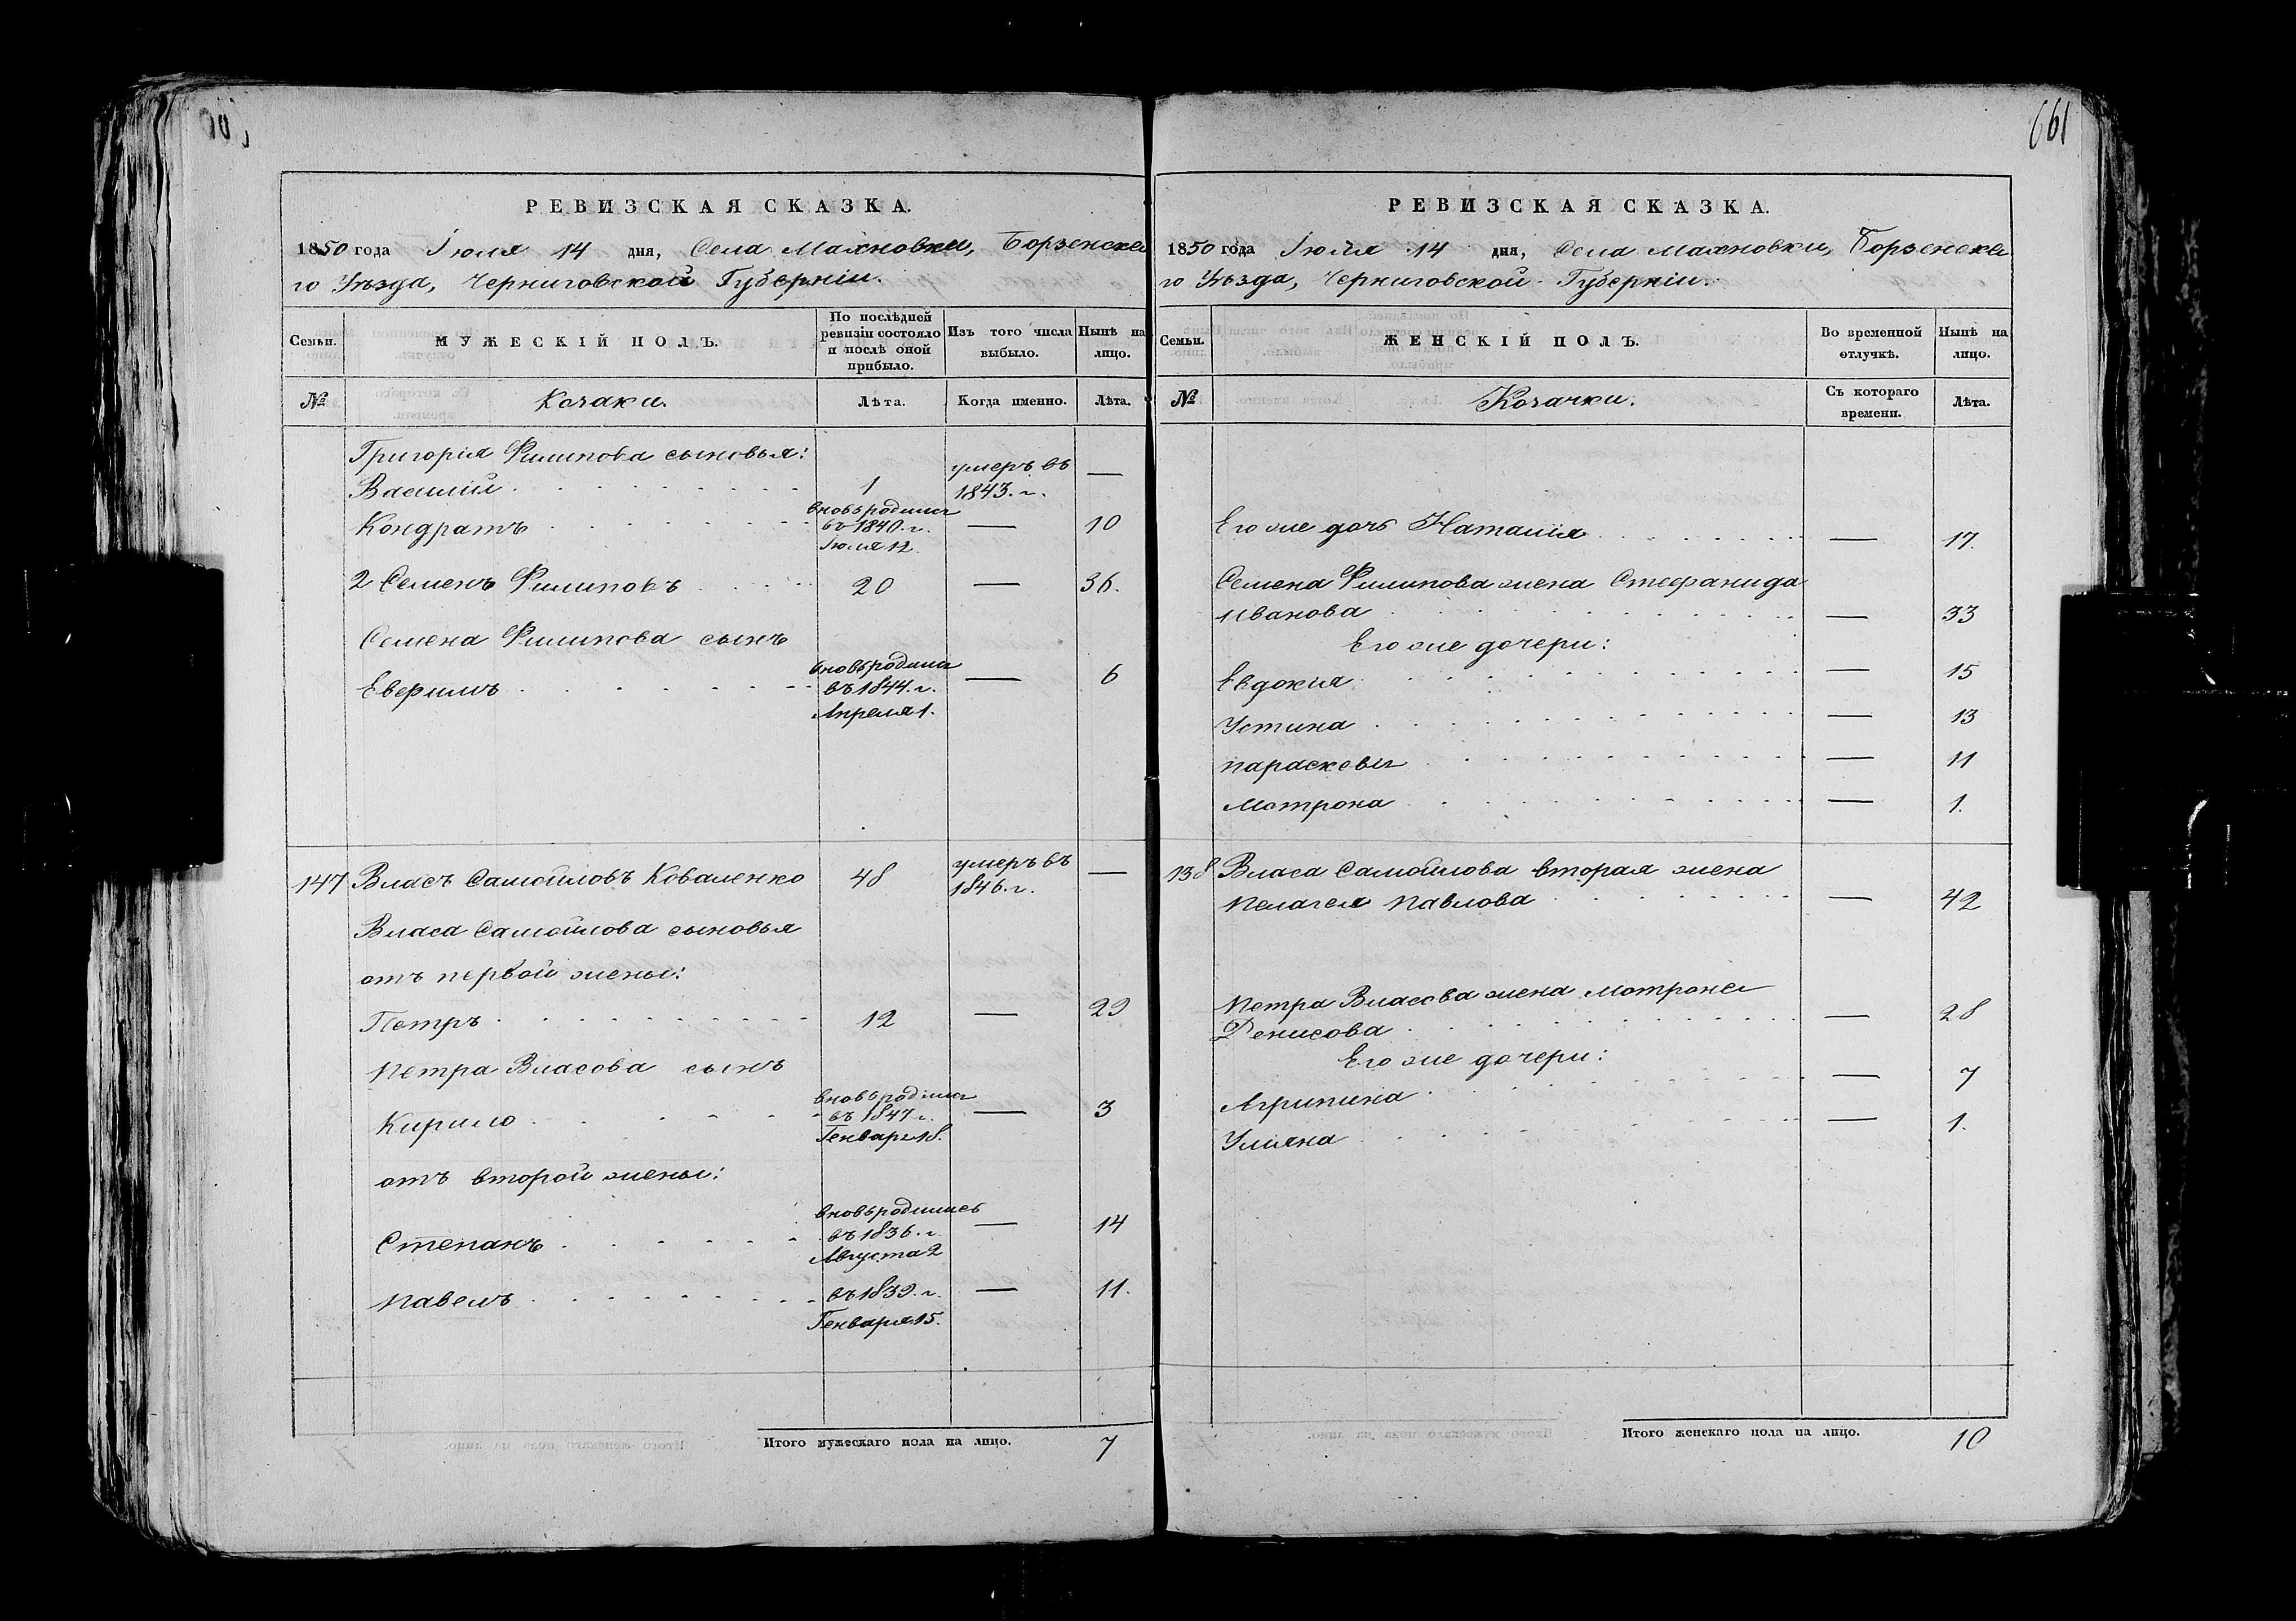 РЕВИЗСКАЯ СКАЗКА.
1850 года Іюля 14 дня, Села Махновки, Борзенска
го Уѣзда, Черниговской Губерніи.
Семьи.
МУЖЕСКІЙ ПОЛЪ.
По послѣдней
ревизіи состояло
и послѣ оной
прибыло.
Изъ того числа
выбыло.
Нынѣ на
лицо.
№
Козаки.
Лѣта.
Когда именно.
Лѣта.
Григорія Филипова сыновья:
Василій 1 умеръ въ 1843. г. —
Кондратъ вновь родился
въ 1840. г. — 10
Іюля 12
2 Семенъ Филиповъ 20 — 36.
Семена Филипова сынъ
Евфимъ вновь родился
въ 1844. г. — 6
Апреля 1.
147 Власъ Самойловъ Коваленко 48 умеръ въ 1846. г. —
Власа Самойлова сыновья
отъ первой жены:
Петръ 12 — 29
Петра Власова сынъ
Кирило вновь родился
въ 1847 г. — 3
Генваря 18.
отъ второй жены:
Степанъ вновь родились
въ 1836. г. — 14
Августа 2
Павелъ въ 1839. г. — 11.
Генваря 15.
Итого мужескаго пола на лицо. 7
661
РЕВИЗСКАЯ СКАЗКА.
1850 года Іюля 14 дня, Села Махновки, Борзенска
го Уѣзда, Черниговской Губерніи.
Семьи.
ЖЕНСКІЙ ПОЛЪ.
Во временной
отлучкѣ.
Нынѣ на
лицо.
№
Козачки.
Съ котораго
времени.
Лѣта.
Его же дочь Наталия — 17.
Семена Филипова жена Стефанида
Иванова — 33
Его же дочери:
Евдокия — 15
Устина — 13
Параскевия — 11
Мотрона — 1.
138 Власа Самойлова вторая жена
Пелагея Павлова — 42
Петра Власова жена Мотрона
Денисова — 28
Его же дочери:
Агрипина — 7
Улияна — 1.
Итого женскаго пола на лицо. 10